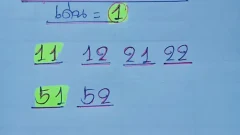 = 1
11 12 21 22
51 52